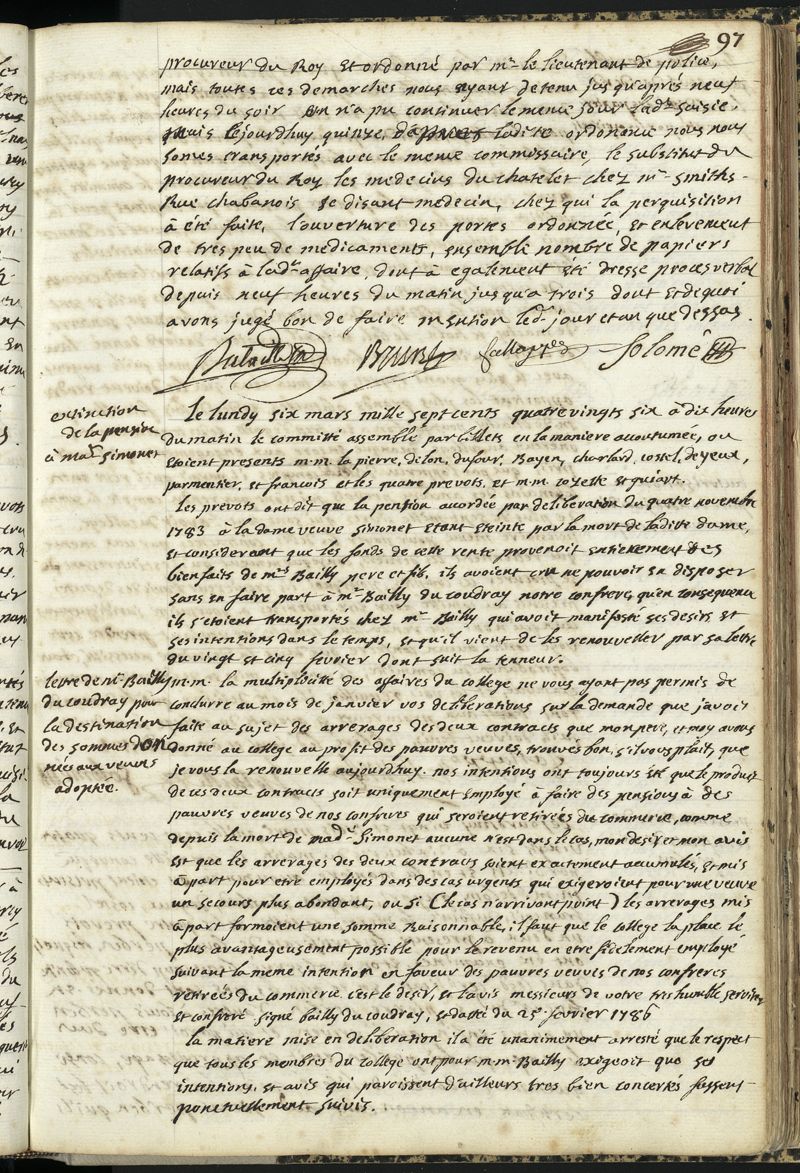 97
procureur du Roy Et ordonné par mr. le lieutenant de police,
mais toutes ces demarches nous ayant detenu jusqu'après neuf
heures du soir on n'a pu continuer le meme jour lade. saisie.
mais cejourdhuy quinze, d'apres ladite ordonance nous nous
somes transportés avec le meme commissaire, le substitut du
procureur du Roy les medecins du chatelet chez mr. Smiths-
Rue chabanois se disant medecin, chez qui la perquisition
à été faite, l'ouverture des portes ordonnée, et enlevement
de tres peu de medicaments, ensemble nombre de papiers
relatifs à lade. affaire, dont à egalement été dressé procesverbal
depuis neuf heures du matin jusqu'a trois dont et de quoi
avons jugé bon de faire mention led. jour et an que dessus.
Solomé
extinction
de la pension
à made. Simonet
Le lundy six mars mille sept cents quatre vingts six à dix heures
du matin le committé assemblé par billets en la maniere accoutumée, ou
etoient presents m.m. la pierre, delon, dufour, Bayen, charlard, costel, deyeux,
parmentier, et francois et les quatre prevots, et m.m. cozette et guiart.
les prevots ont dit que la pension accordée par deliberation du quatre novembre
1783 à la dame veuve simonet etant eteinte par la mort de ladite dame,
et considerant que les fonds de cette rente provenoit entierement des
bienfaits de mrs. Bailly pere et fils, ils avoient cru ne pouvoir en disposer
sans en faire part à mr. Bailly du coudray notre confrere, qu'en consequence
ils s'etoient transportés chez mr. Bailly qui avoit manifesté ses desirs et
ses intentions dans le temps, et qu'il vient de les renouveller par sa lettre
du vingt et cinq fevrier dont suit la tenneur.
lettre de mr. Bailly
du coudray pour
la destination
des sommes don
nées aux veuves
adoptée.
m.m. la multiplicité des affaires du college ne vous ayant pas permis de
conclurre au mois de janvier vos deliberations sur la demande que j'avois
faite au sujet des arrerages des deux contracts que mon pere, et moy avons
donné au college au profit des pauvres veuves, trouvés bon, s'il vous plait, que
je vous la renouvelle aujourdhuy. nos intentions ont toujours été que le produit
de ces deux contracts soit uniquement employé à faire des pensions à des
pauvres veuves de nos confreres qui seroient retirées du commerce, comme
depuis la mort de made. Simonet aucune n'est dans le cas, mon desir et mon avis
est que les arrerages des deux contracts soient exactement accumulés, et mis
à part pour etre employés dans des cas urgents qui exigeroient pour une veuve
un secours plus abondant, ou si (le cas n'arrivant point) les arrerages mis
à part formoient une somme Raisonnable, il faut que le college la place le
plus avantageusement possible pour le revenu en etre fidelement employé
suivant la meme intention en faveur des pauvres veuves de nos confreres
retirées du commerce. c'est le desir, et l'avis messieurs de votre tres humble serviteur
et confrere signé bailly du coudray, et datté du 25e. fevrier 1786
la matiere mise en deliberation il a été unanimement arresté que le respect
que tous les membres du college ont pour m.m. Bailly exigeoit que ses
intentions, et avis qui paroissent d'ailleurs tres bien concertés fussent
ponctuellement suivis.